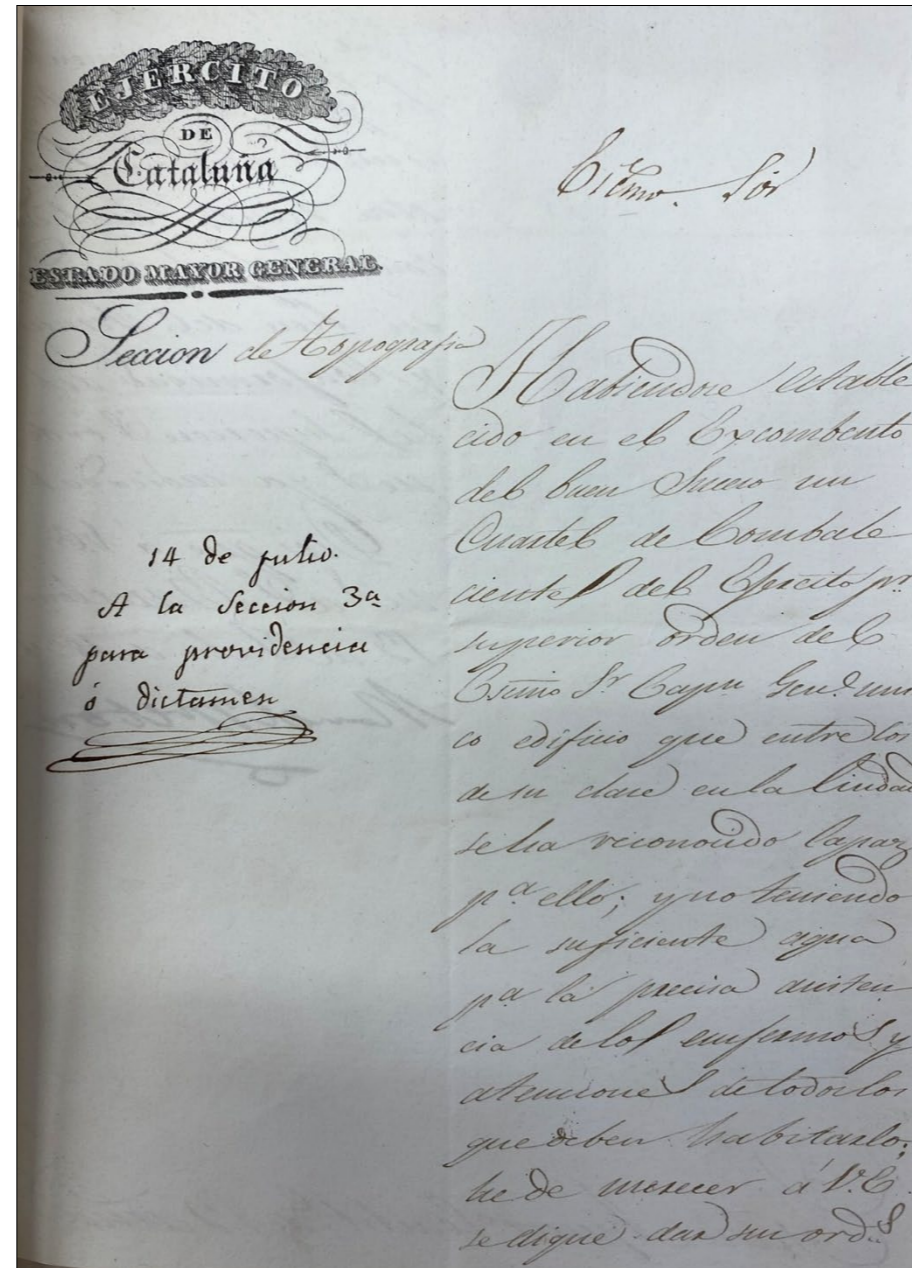 EJERCITO
DE
Cataluña
ESTADO MAYOR GENERAL.
Seccion de Topografia
Escmo. Sor
14 de julio.
A la Seccion 3a
para providencia
ó dictamen
Habiendose estable
cido en el Excombento
del buen Suceso un
Cuartel de Combale
cientes del Ejercito pr.
superior orden del
Escmo Sr Capn Genl. uni
co edificio que entre los
de su clase en la Ciudad
se ha reconocido capaz
pa. ello; y no teniendo
la suficiente agua
pa la precisa asisten
cia de los enfermos y
atenciones de todos los
que deben habitarlo;
he de merecer á V.E.
se digne dar sus ords.